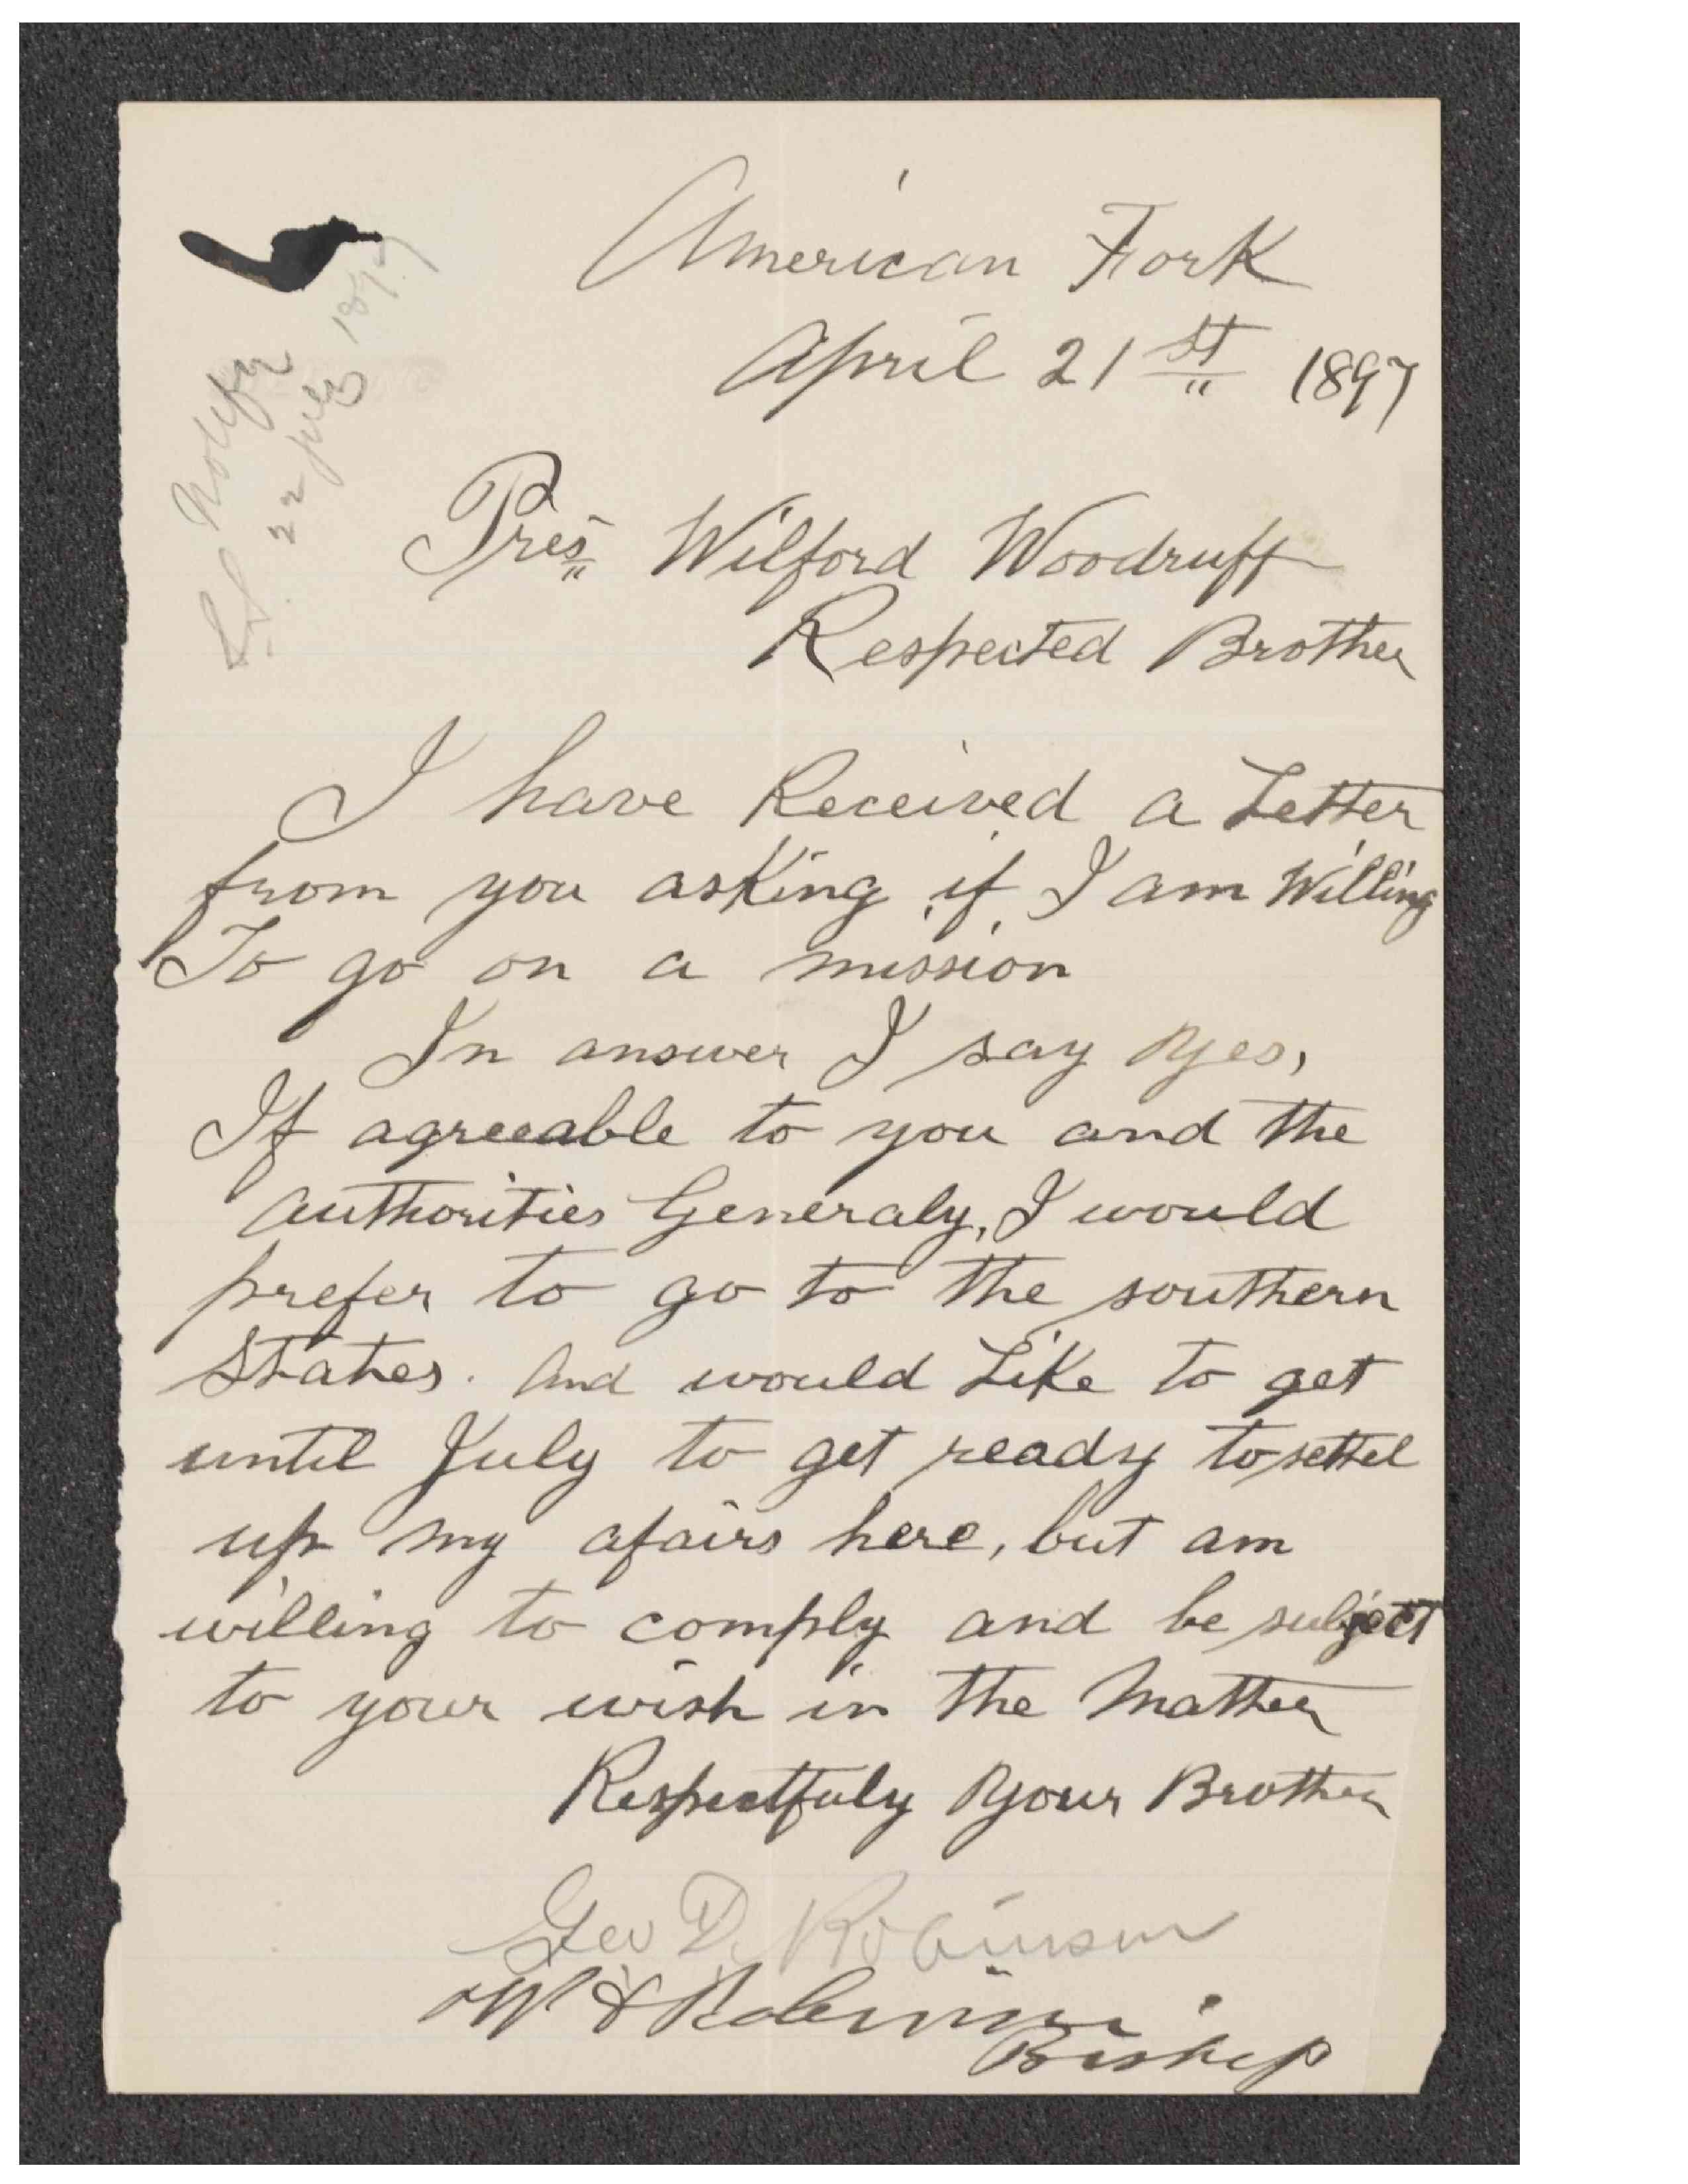 American Fork
April 21st 1897
Pres Wilford Woodruff
Respected Brother
I have Received a Letter
from you asking if I am Willing
To go on a mission
In answer I say yes,
If agreeable to you and the
authorities Generaly, I would
prefer to go to the southern
States. And would Like to get
until July to get ready to settel
up my afairs here, but am
willing to comply and be subject
to your wish in the Matter
Respectfuly Your Brother
Geo D. Robinson
Robinson
Bishop
22 July 1897